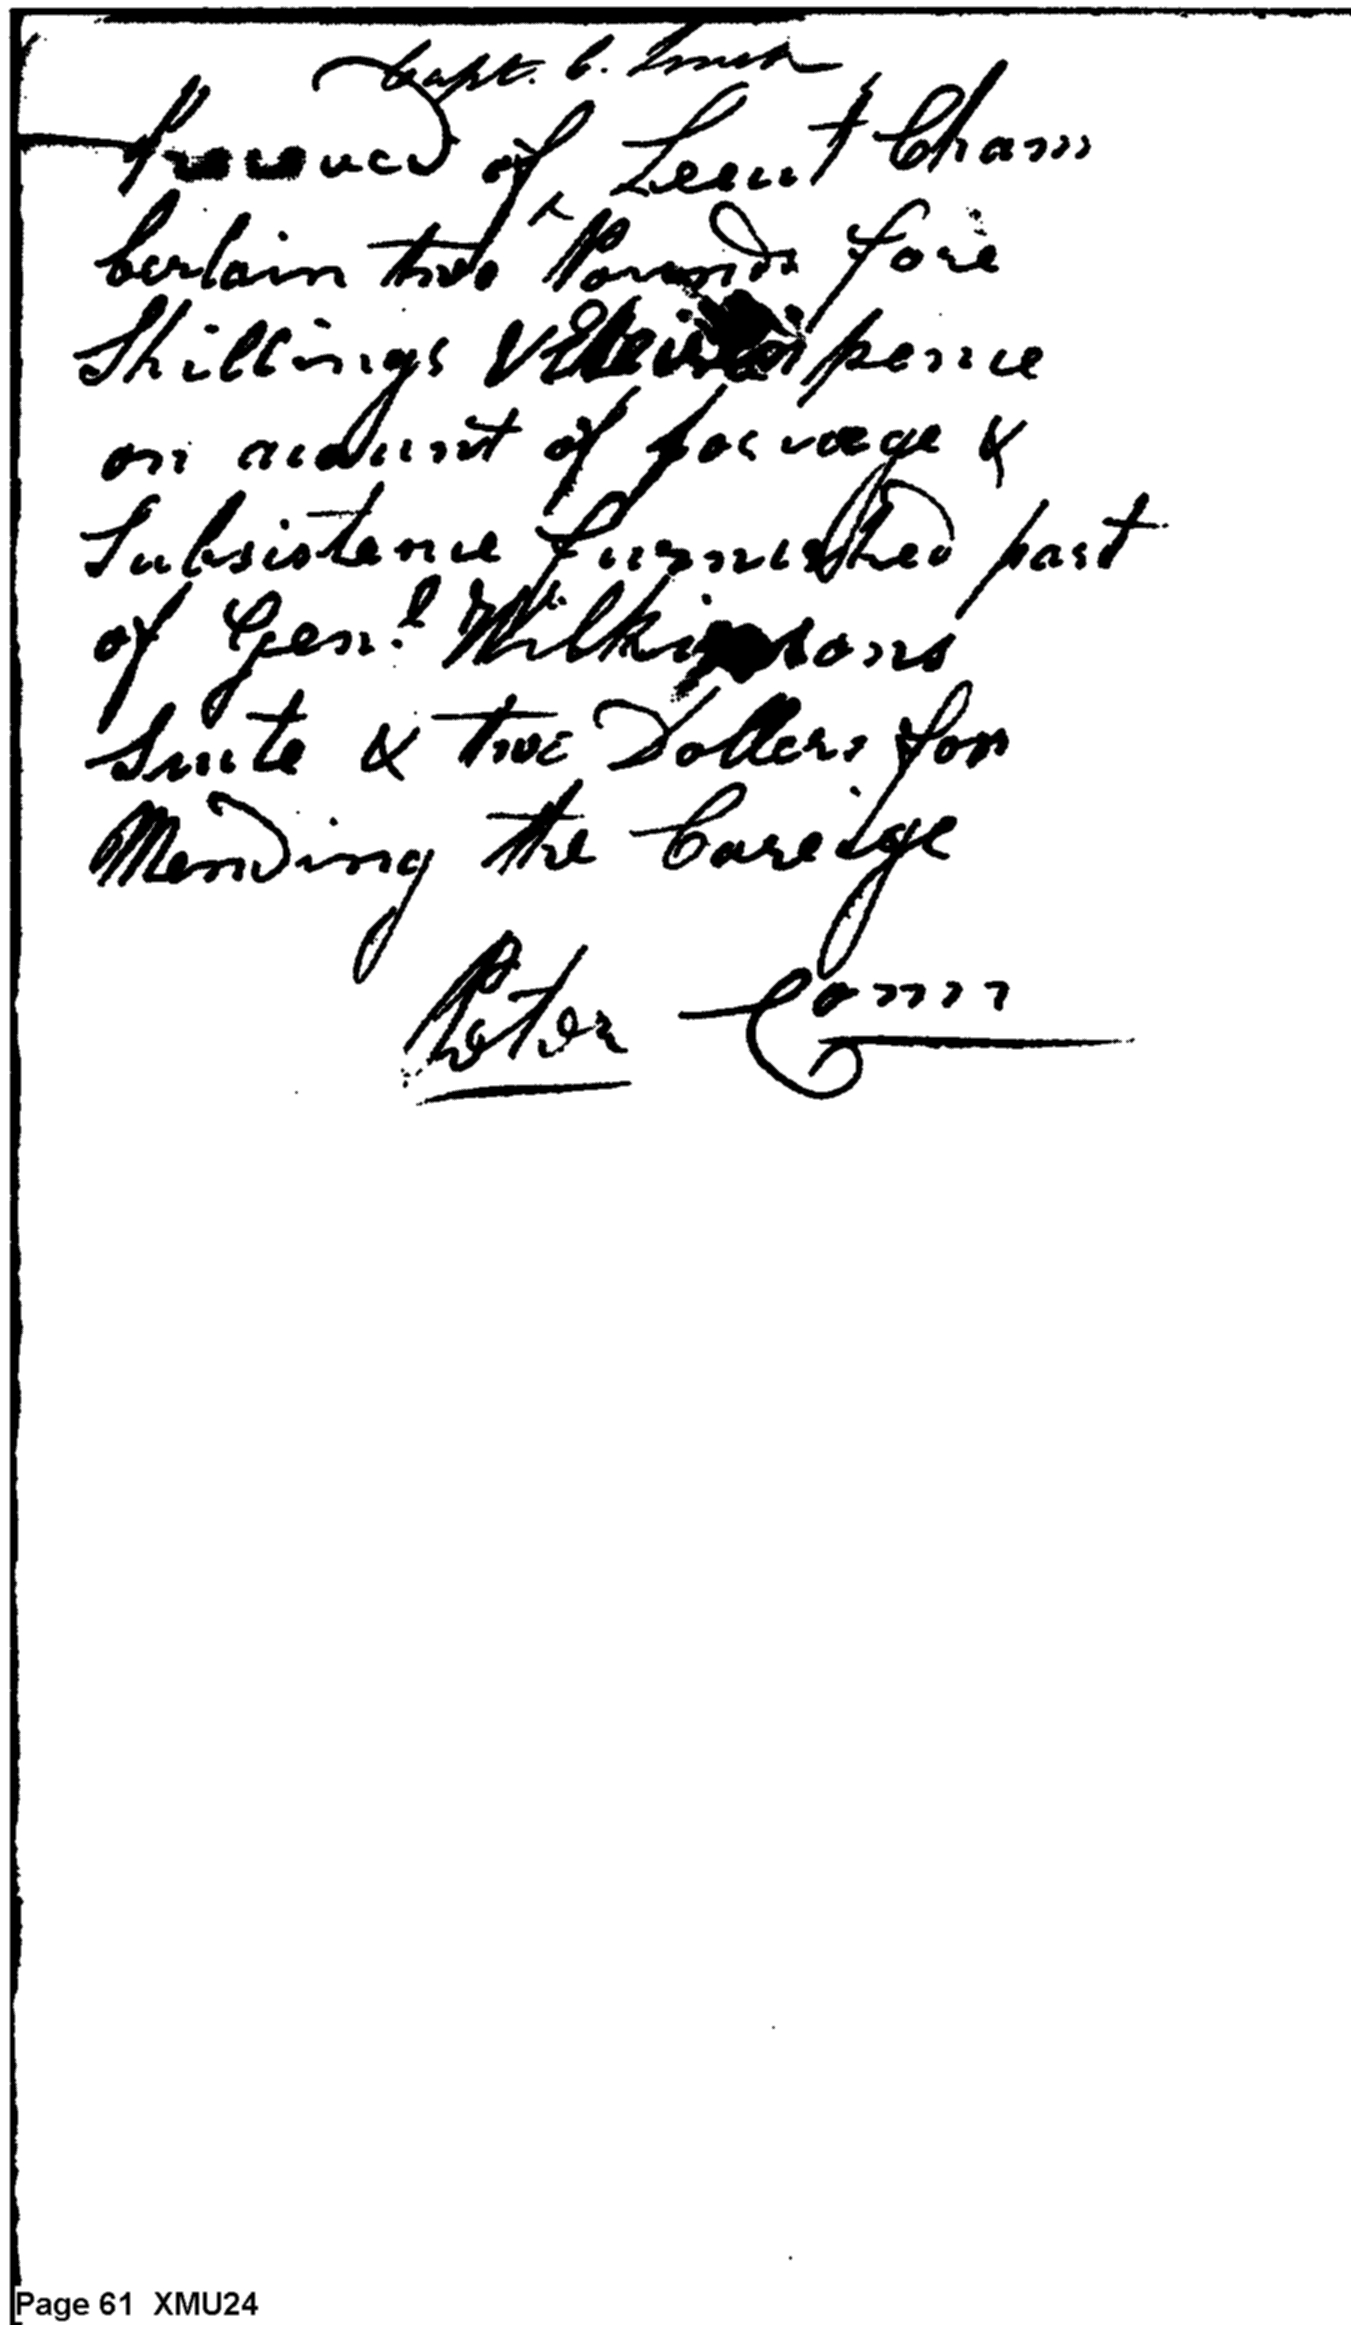 Capt. C. Smith
of Leeut Cham
berlain two Pounds fore
Shillings & pence
on acount of forrage &
Subsistence furnished part
of Genl. Wilkinsons
Suite & two Dollers for
Mending the Careidge
Peter Conn
Page 61 XMU24